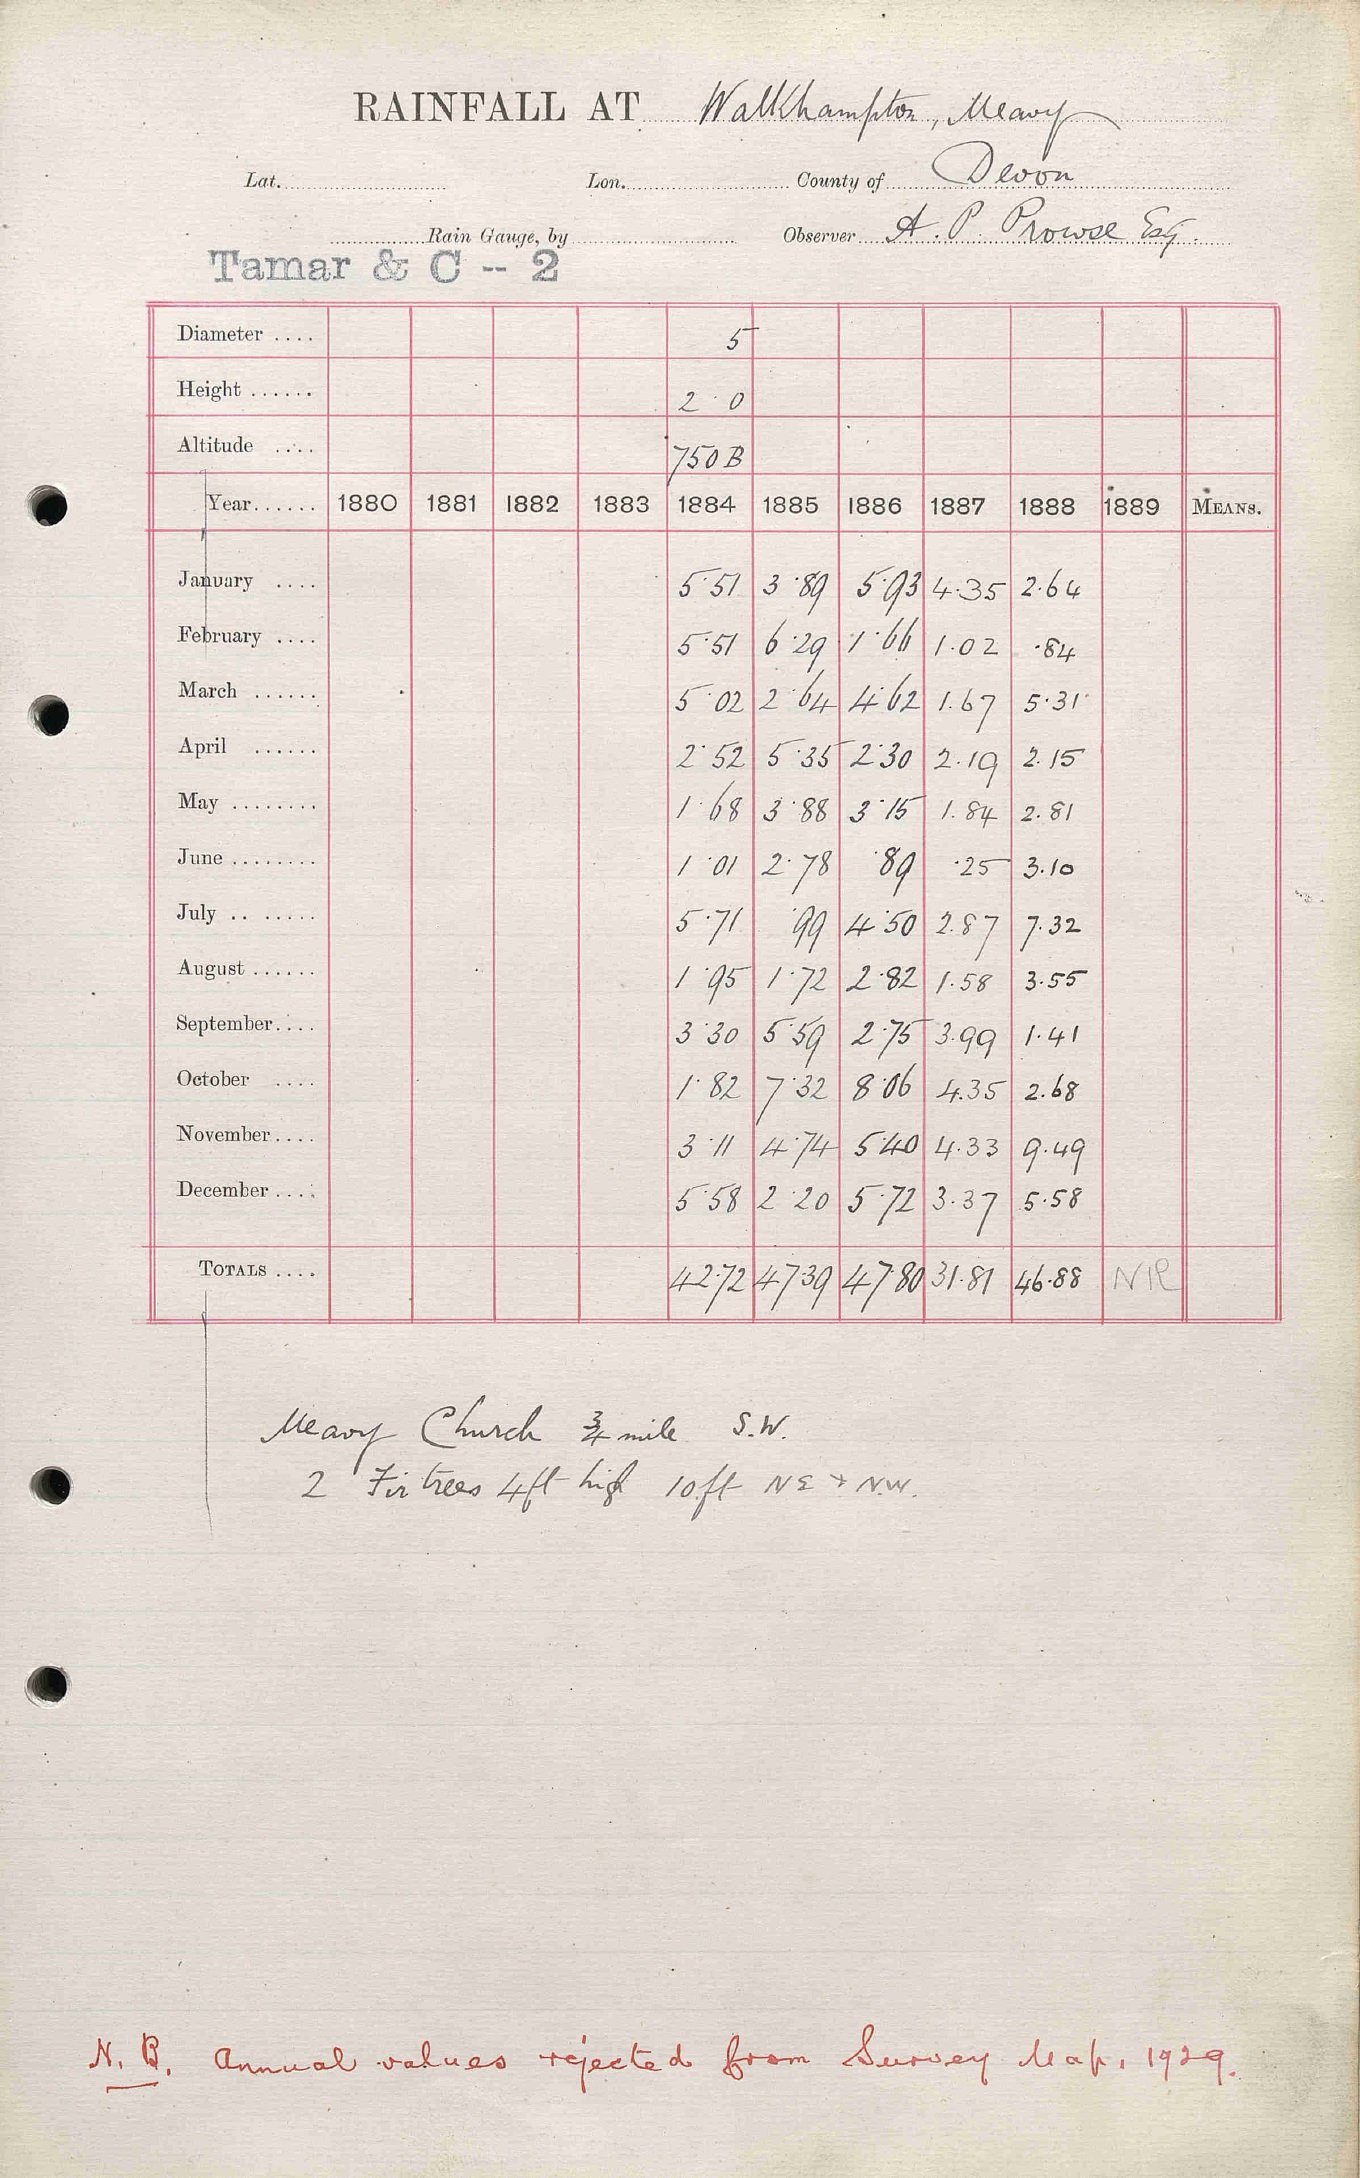 RAINFALL AT Walkhampton, Meavy
Lat. Lon. County of Devon
Rain Gauge, by Observer A. P. Prowse Esq.
Tamar & C -- 2
Diameter .... 5
Height ...... 2 · 0
Altitude .... 750 B
Year...... 1880 1881 1882 1883 1884 1885 1886 1887 1888 1889 MEANS.
January .... 5·51 3·89 5·93 4·35 2·64
February .... 5·51 6·29 1·66 1·02 ·84
March ...... 5·02 2·64 4·62 1.67 5·31
April ...... 2·52 5·35 2·30 2·19 2.15
May ........ 1·68 3·88 3·15 1.84 2.81
June ........ 1·01 2·78 ·89 ·25 3.10
July .. ..... 5·71 ·99 4·50 2.87 7.32
August ...... 1·95 1·72 2·82 1.58 3.55
September.... 3·30 5·59 2·75 3.99 1·41
October .... 1·82 7·32 8·06 4.35 2.68
November.... 3·11 4·74 5·40 4·33 9·49
December .... 5·58 2·20 5·72 3·37 5·58
TOTALS .... 42·72 47·39 47·80 31·81 46·88 NR
Meavy Church 3/4 mile S.W.
2 Fir trees 4ft high 10ft NE + N.W.
N.B. Annual values rejected from Survey Map, 1929.